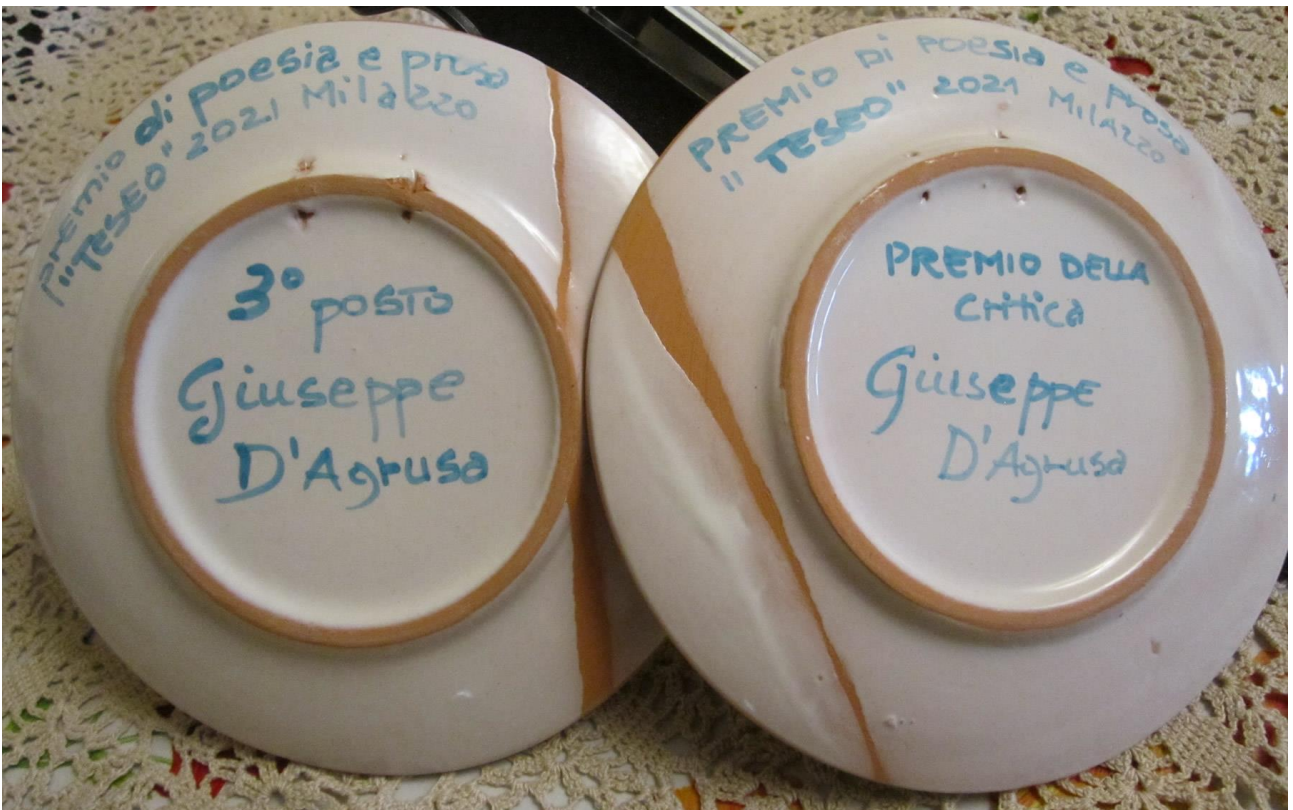 premio di poesia e prosa
"TESEO" 2021 Milazzo
3° posto
Giuseppe
D'Agrusa
PREMIO DI POESIA e PROSA
"TESEO" 2021 MilAZZO
PREMIO DELLA
Critica
Giuseppe
D'Agrusa